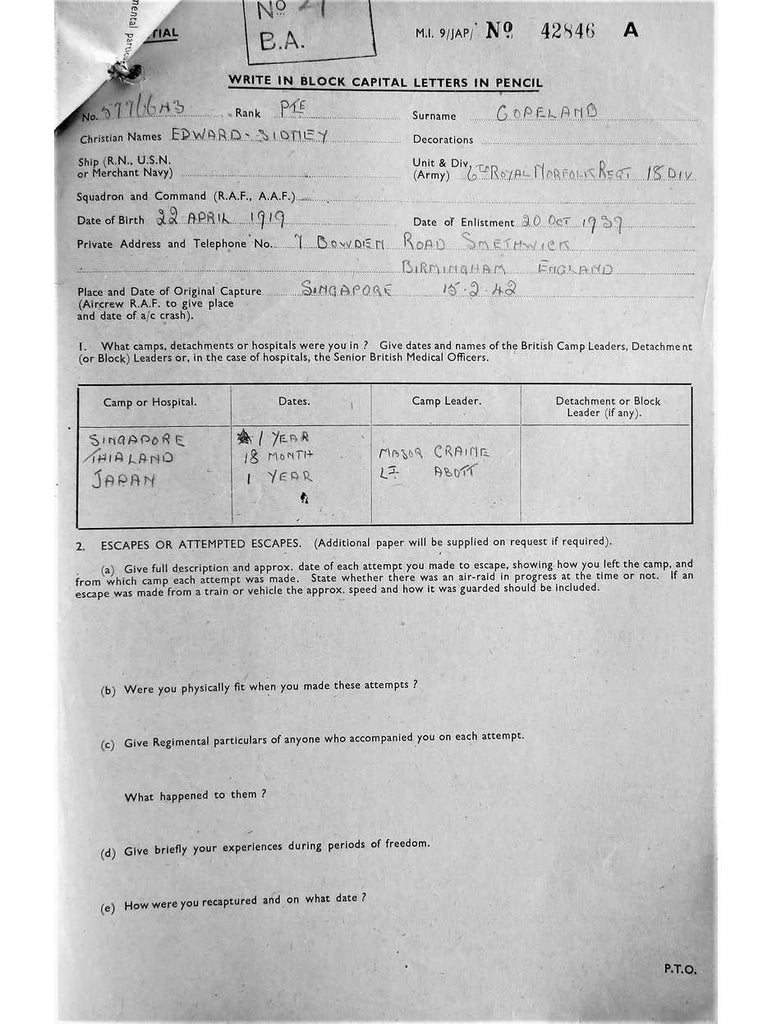 mental
TIAL
No 27
B.A.
M.I. 9/JAP/ No 42846 A
WRITE IN BLOCK CAPITAL LETTERS IN PENCIL
No. 5776643 Rank PTE
Surname COPELAND
Christian Names EDWARD-SIDNEY
Decorations
Ship (R.N., U.S.N.
or Merchant Navy)
Unit & Div.
(Army) 6TH ROYAL NORFOLK REGT 18 DIV
Squadron and Command (R.A.F., A.A.F.)
Date of Birth 22 APRIL 1919
Date of Enlistment 20 OCT 1939
Private Address and Telephone No. 7 BOWDEN ROAD SMETHWICK
BIRMINGHAM ENGLAND
Place and Date of Original Capture SINGAPORE 15-2-42
(Aircrew R.A.F. to give place
and date of a/c crash).
1. What camps, detachments or hospitals were you in ? Give dates and names of the British Camp Leaders, Detachment
(or Block) Leaders or, in the case of hospitals, the Senior British Medical Officers.
Camp or Hospital. Dates. Camp Leader. Detachment or Block
Leader (if any).
SINGAPORE 1 YEAR
THIALAND 18 MONTH MAJOR CRAINE
JAPAN 1 YEAR LT ABOTT
2. ESCAPES OR ATTEMPTED ESCAPES. (Additional paper will be supplied on request if required).
(a) Give full description and approx. date of each attempt you made to escape, showing how you left the camp, and
from which camp each attempt was made. State whether there was an air-raid in progress at the time or not. If an
escape was made from a train or vehicle the approx. speed and how it was guarded should be included.
(b) Were you physically fit when you made these attempts ?
(c) Give Regimental particulars of anyone who accompanied you on each attempt.
What happened to them ?
(d) Give briefly your experiences during periods of freedom.
(e) How were you recaptured and on what date ?
P.T.O.